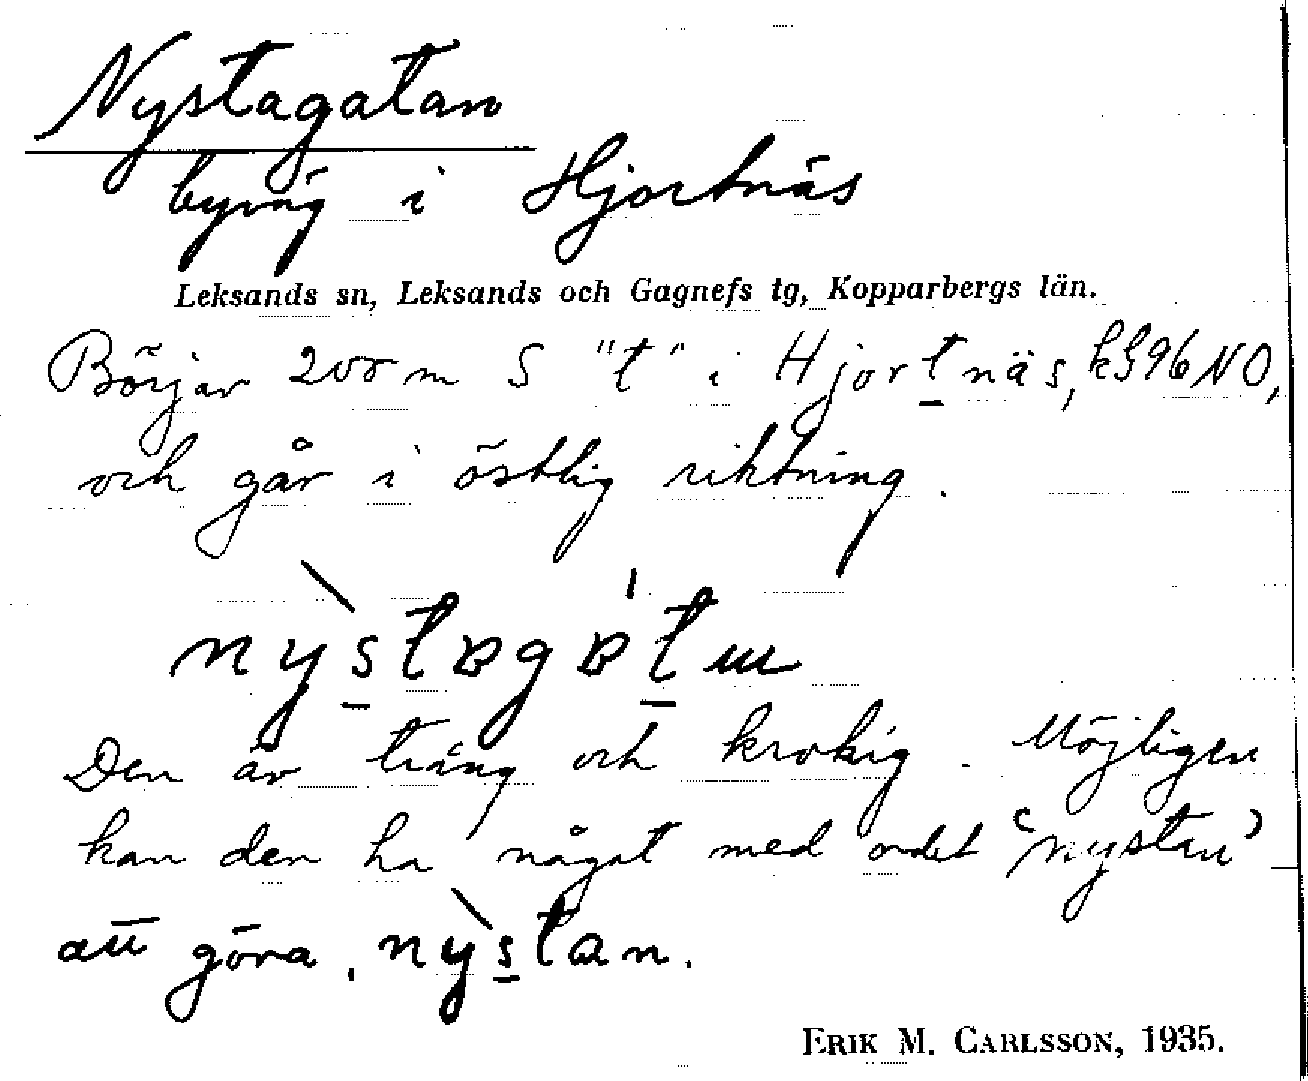 Nystagatan
byväg i Hjortnäs
Leksands sn, Leksands och Gagnefs tg, Kopparbergs län.
Börjar 200 m S "t" i Hjortnäs, k§96NO,
och går i östlig riktning.
nỳstɒgɒ́tɯ
Den är trång och krokig. Möjligen
kan den ha något med ordet "nystan"
att göra, nỳstan.
ERIK M. CARLSSON, 1935.